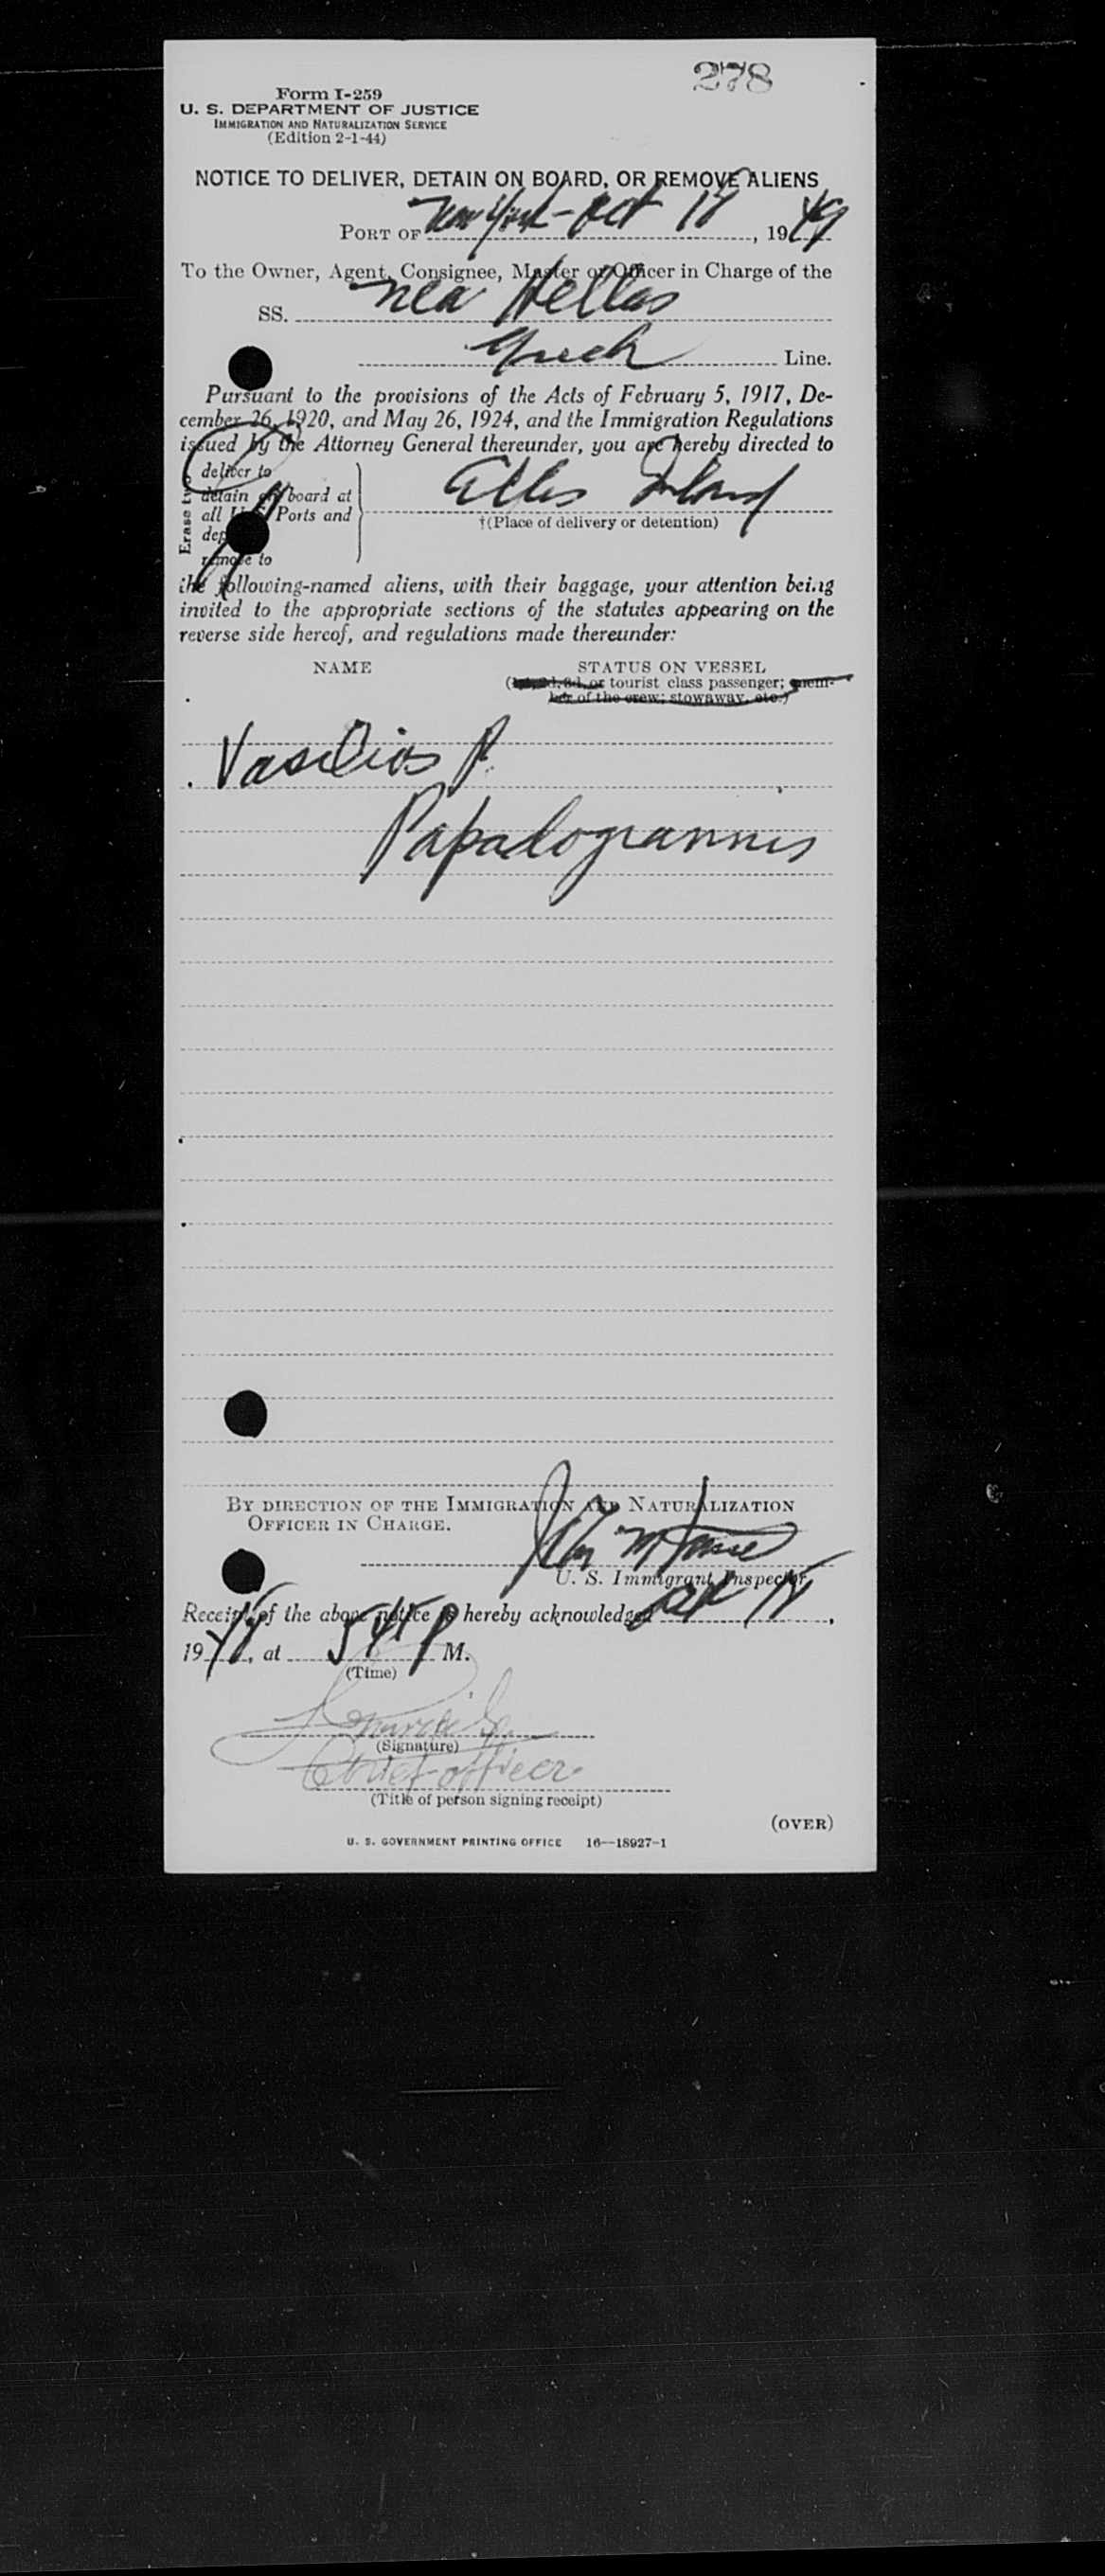 278
Form I-259
U. S. DEPARTMENT OF JUSTICE
IMMIGRATION AND NATURALIZATION SERVICE
(Edition 2-1-44)
NOTICE TO DELIVER, DETAIN ON BOARD, OR REMOVE ALIENS
PORT OF New York - Oct 19, 1949
To the Owner, Agent, Consignee, Master or Officer in Charge of the
SS. Nea Hellas
Greek Line.
Pursuant to the provisions of the Acts of February 5, 1917, De-
cember 26, 1920, and May 26, 1924, and the Immigration Regulations
issued by the Attorney General thereunder, you are hereby directed to
Erase two
deliver to
detain on board at
all Ports and
remove to
Ellis Island
†(Place of delivery or detention)
the following-named aliens, with their baggage, your attention being
invited to the appropriate sections of the statutes appearing on the
reverse side hereof, and regulations made thereunder:
NAME STATUS ON VESSEL
or tourist class passenger; mem-
ber of the crew; stowaway, etc.)
Vasilios P.
Papalogiannis
BY DIRECTION OF THE IMMIGRATION AND NATURALIZATION
OFFICER IN CHARGE.
U. S. Immigrant Inspector.
Receipt of the above notice is hereby acknowledged
19, at 545 P M.
(Time)
(Signature)
Chief officer
(Title of person signing receipt)
(OVER)
U. S. GOVERNMENT PRINTING OFFICE 16—18927-1